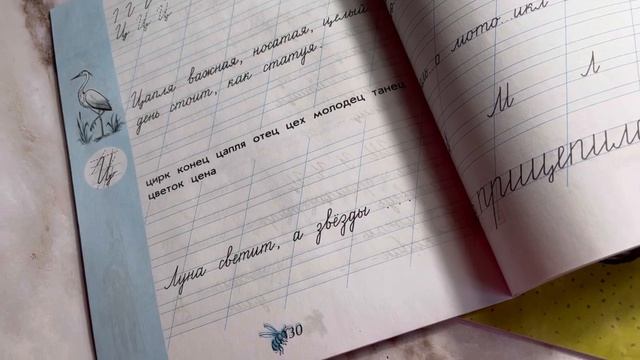 Ц Ц Ц
Цапля важная, носатая, целый
день стоит, как статуя.
Ц
цирк конец цапля отец цех молодец танец
цветок цена
Луна светит, а звёзды ....
30
о мото...икл
М Л
прищепил